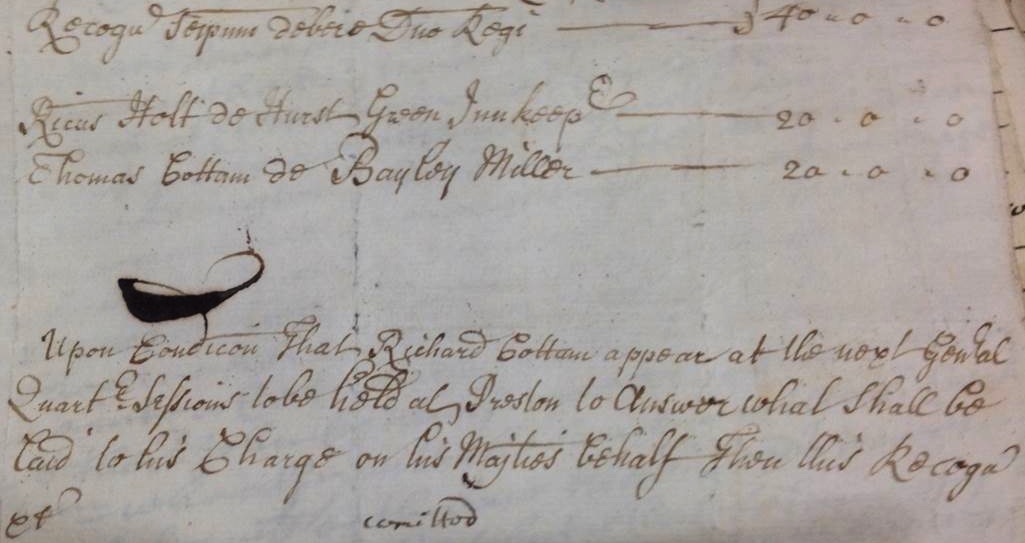 Recogn Seipum debere Dno Regi 40 - 0 - 0
Ricus Holt de Hurst Green Innkeepr 20 - 0 - 0
Thomas Cottam de Bayley Miller 20 - 0 - 0
Upon Condicon That Richard Cottam appear at the next Gen'al
Quartr Sessions to be held at Preston to Answer what shall be
laid to his Charge on his Majties behalf Then this Recogn
comitted